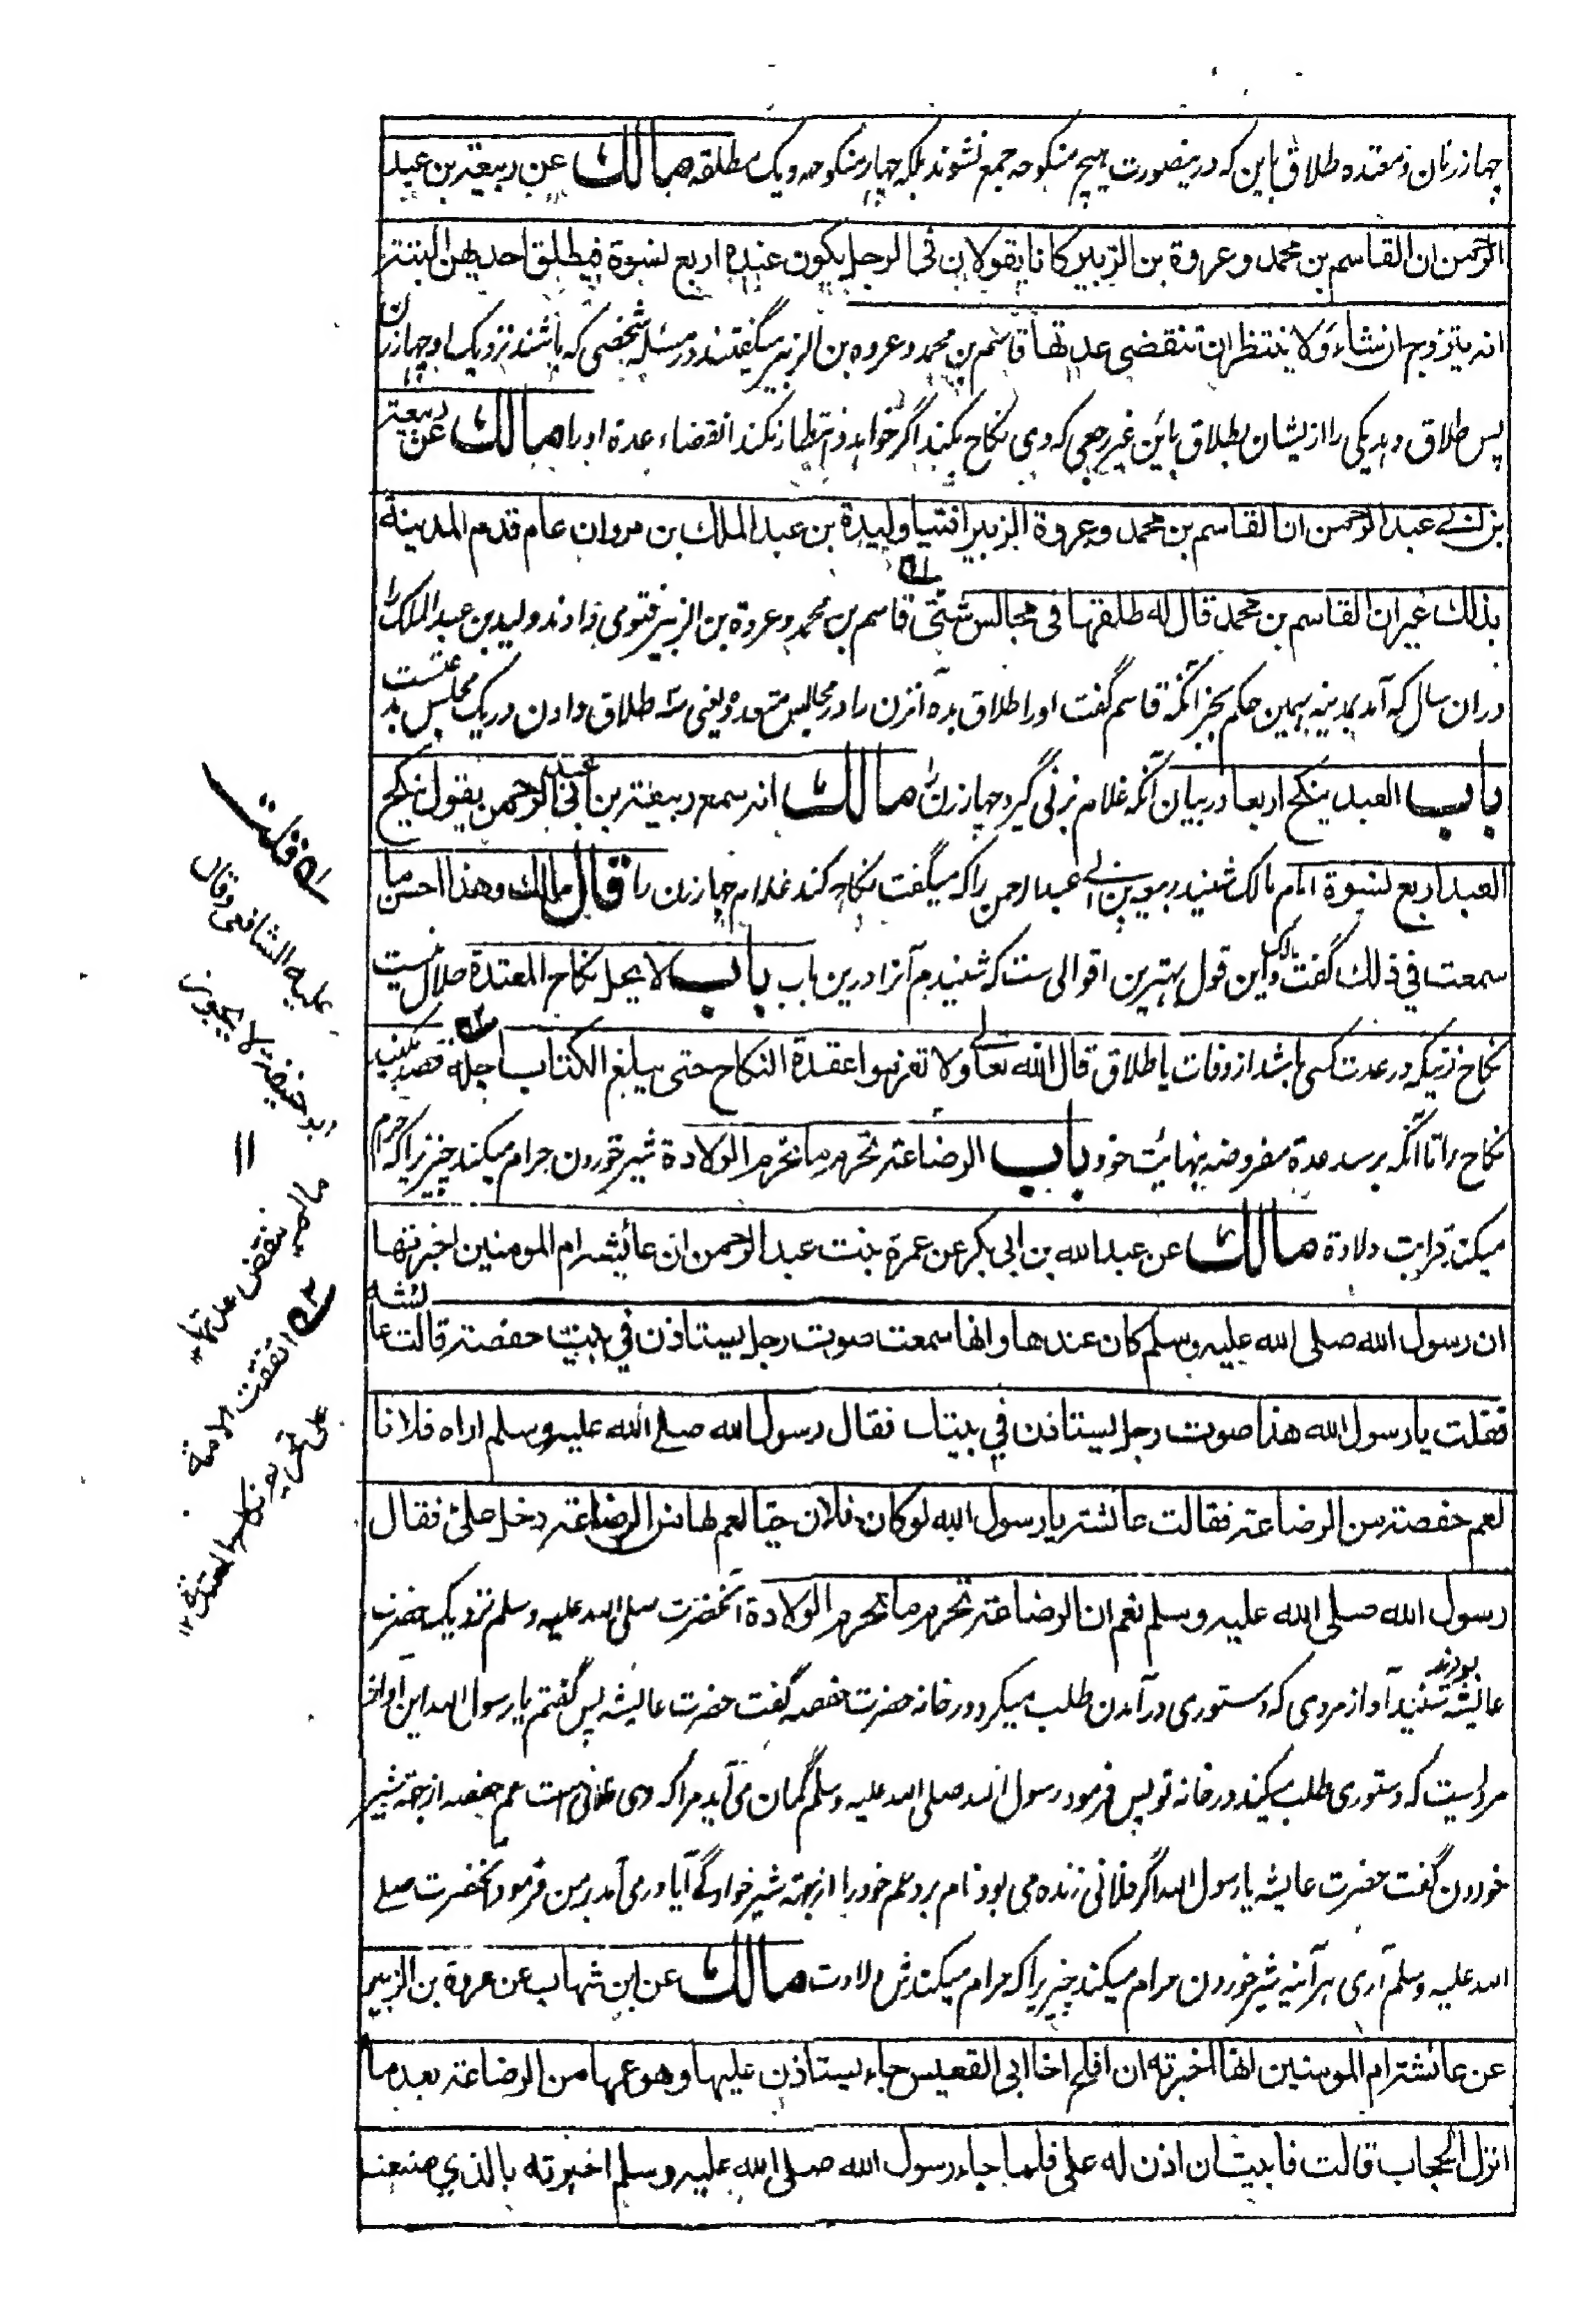 چهار زنان و معتده طلاق باین که درینصورت پنج منکوحه جمع نشوند بلکه چهار منکوحه و یک مطلقه مالك عن ربیعة بن عبد
الرحمن ان القاسم بن محمد وعروة بن الزبیر کانا یقولان فی الرجل یکون عنده اربع نسوة فیطلق احدیهن البتة
انه یتزوج ان شاء ولا ینتظر ان تنقضی عدتها قاسم بن محمد و عروه بن الزبیر میگفتند در مسئله شخصی که باشند نزدیک او چهار زن
پس طلاق دهد یکی را ازیشان بطلاق بائن غیر رجعی که وی نکاح بکند اگر خواهد و انتظار نکند انقضاء عدة او را مالك عن ربیعة
بن ابی عبد الرحمن ان القاسم بن محمد وعروة الزبیر افتیا ولیدة بن عبد الملك بن مروان عام قدم المدینة
بذلك غیر ان القاسم بن محمد قال له طلقها فی مجالس شتی قاسم بن محمد و عروة بن الزبیر فتوی دادند ولید بن عبد الملک را
دران سال که آمد بمدینه بهمین حکم بجز آنکه قاسم گفت او را طلاق بده آنزن را در مجالس متعدده یعنی سه طلاق دادن در یک مجلس بدعتست
باب العبد ینکح اربعا در بیان آنکه غلام بزنی گیرد چهار زن را مالك انه سمع ربیعة بن ابی عبد الرحمن یقول ینکح
العبد اربع نسوة امام مالک شنید ربیعه بن ابی عبد الرحمن را که میگفت نکاح کند غلام چهار زن را قال مالك وهذا احسن ما
سمعت فی ذلك گفت مالک و این قول بهترین اقوالی ست که شنیدم آنرا درین باب باب لا یحل نکاح المعتدة حلال نیست
نکاح زنیکه در عدت کسی باشد از وفات یا طلاق قال الله تعالی ولا تعزموا عقدة النکاح حتی یبلغ الکتاب اجله قصد مکنید
نکاح را تا آنکه برسد عدة مفروضه بنهایت خود باب الرضاعة تحرم ما تحرم الولادة شیر خوردن حرام میکند چیزیرا که حرام
میکند قرابت ولادة مالك عن عبد الله بن ابی بکر عن عمرة بنت عبد الرحمن ان عائشة ام المومنین اخبرتها
ان رسول الله صلی الله علیه وسلم کان عندها وانها سمعت صوت رجل یستاذن فی بیت حفصة قالت عائشه
فقلت یا رسول الله هذا صوت رجل یستاذن فی بیتك فقال رسول الله صلے الله علیه وسلم اراه فلانا
لعم حفصة من الرضاعة فقالت عائشة یا رسول الله لو کان فلان حیا لعم لها من الرضاعة دخل علیّ فقال
رسول الله صلی الله علیه وسلم نعم ان الرضاعة تحرم ما تحرم الولادة آنحضرت صلی الله علیه وسلم نزدیک حضرت
عائیشه بودند شنید آواز مردی که دستوری در آمدن طلب میکرد در خانه حضرت حفصه گفت حضرت عایشه پس گفتم یا رسول الله این آواز
مردیست که دستوری طلب میکند در خانه تو پس فرمود رسول الله صلی الله علیه وسلم گمان می آید مرا که وی فلانی است عم حفصه از جهة شیر
خوردن گفت حضرت عایشه یا رسول الله اگر فلانی زنده می بود نام برد عم خود را از جهة شیر خوارگی آیا در می آمد بر من فرمود آنحضرت صلے
الله علیه وسلم آری هر آئینه شیر خوردن حرام میکند چیزیرا که حرام میکندش ولادت مالك عن ابن شهاب عن عروة بن الزبیر
عن عائشة ام المومنین انها اخبرته ان افلح اخا ابی القعیس جاء یستاذن علیها وهو عمها من الرضاعة بعد ما
انزل الحجاب قالت فابیت ان اذن له علی فلما جاء رسول الله صلی الله علیه وسلم اخبرته بالذی صنعت
له قلت
علیه الشافعی وقال
ابو حنیفة لا یجوز
مالم ینقض عدتها
اتفقت الامة
علی تحریم نکاح المعتدة ۱۲